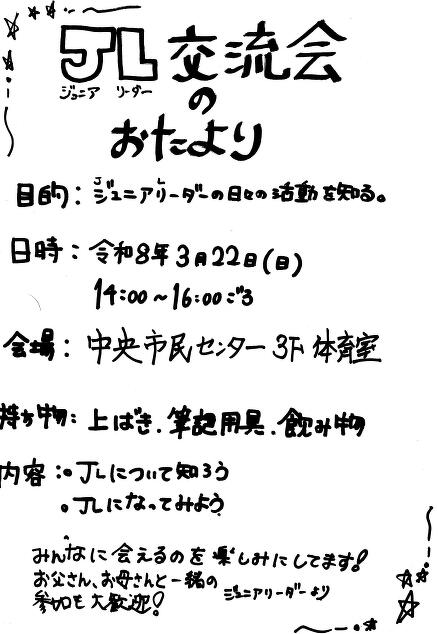 JL交流会
ジュニア リーダー
の
おたより
目的：ジュニアリーダーの日々の活動を知る。
日時：令和8年3月22日(日)
14:00〜16:00ごろ
会場：中央市民センター 3F 体育室
持ち物：上ばき.筆記用具.飲み物
内容：•JLについて知ろう
•JLになってみよう
みんなに会えるのを楽しみにしてます!
お父さん、お母さんと一緒の
参加も大歓迎!
ジュニアリーダーより